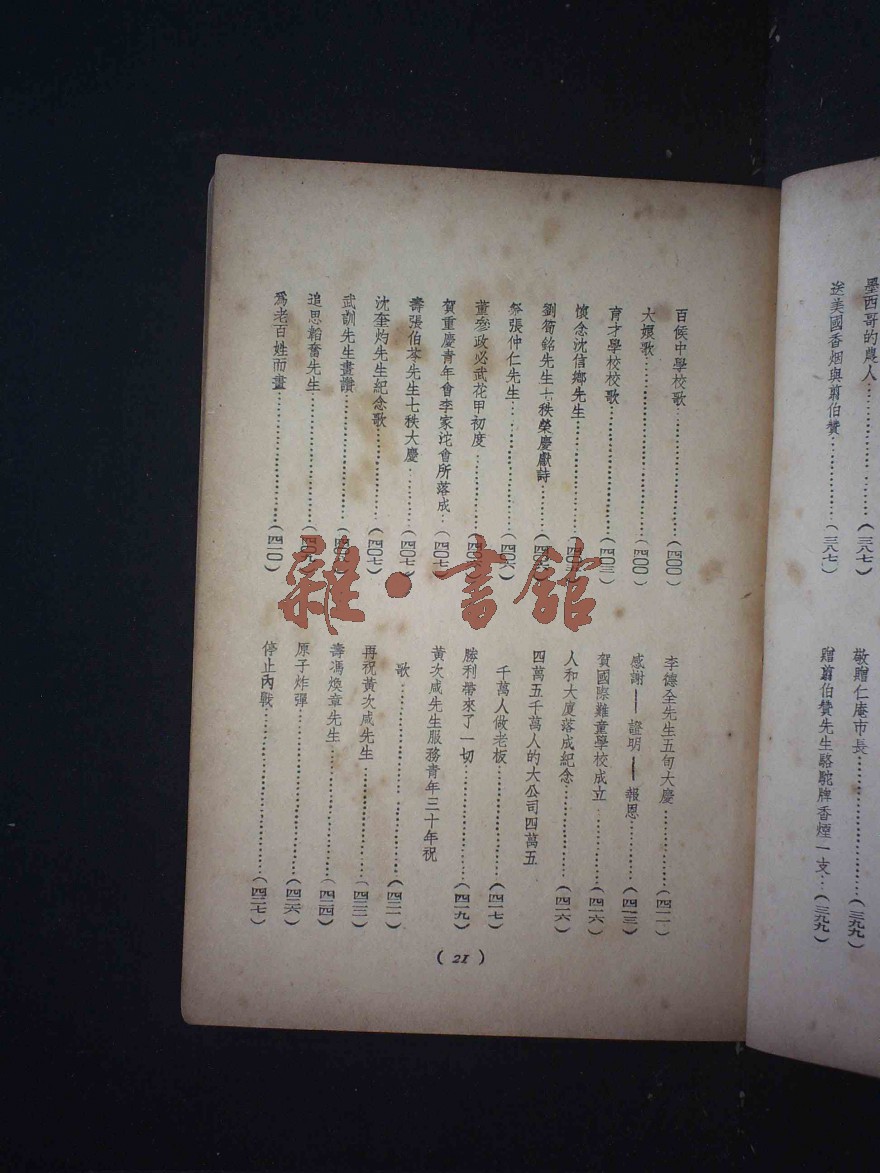 墨西哥的農人………………(三八七)
送美國香烟與翦伯贊…………(三八七)
敬贈仁庵市長………………(三九九)
贈翦伯贊先生駱駝牌香煙一支…(三九九)
百侯中學校歌………………(四〇〇)
大嫂歌………………(四〇〇)
育才學校校歌………………(四〇三)
懷念沈信鄉先生
劉筍銘先生七秩榮慶獻詩
祭張仲仁先生………………(四〇六)
董參政必武花甲初度
賀重慶青年會李家沱會所落成…(四〇七)
壽張伯苓先生七秩大慶………(四〇七)
沈奎灼先生紀念歌…………(四〇七)
武訓先生畫讚
追思韜奮先生………………(四〇九)
爲老百姓而畫………………(四一〇)
李德全先生五旬大慶…………(四一一)
感謝——證明——報恩…………(四一三)
賀國際難童學校成立…………(四一六)
人和大廈落成紀念…………(四一六)
四萬五千萬人的大公司四萬五
千萬人做老板………………(四一七)
勝利帶來了一切………………(四一九)
黃次咸先生服務青年三十年祝
歌………………(四二一)
再祝黃次咸先生………………(四二二)
壽馮煥章先生………………(四二四)
原子炸彈………………(四二六)
停止內戰………………(四二七)
(21)
雜·書館